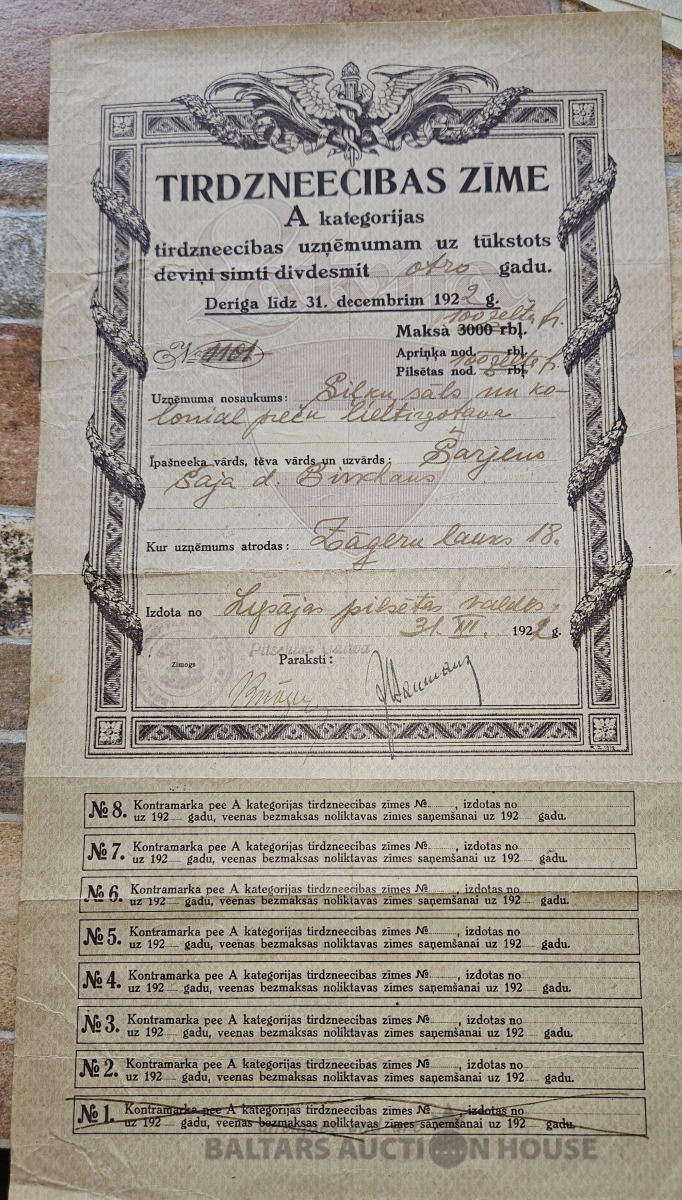 TIRDZNEECIBAS ZĪME
A kategorijas
tirdzneecibas uzņēmumam uz tūkstots
deviņi simti divdesmit otro gadu.
Deriga līdz 31. decembrim 1922 g.
100 zelta fr.
Maksā 3000 rbļ.
№ 1101
Apriņķa nod. rbļ.
100 zelta fr.
Pilsētas nod. rbļ.
Uzņēmuma nosaukums: Siļķu sāls un ko-
lonial preču lieltirgotava
Īpašneeka vārds, tēva vārds un uzvārds: Šarjens
Saja d.
Kur uzņēmums atrodas: Zāgeru lauks 18.
Izdota no pilsētas valdes
31. XII. 1922 g.
Zimogs
Paraksti:
№ 8. Kontramarka pee A kategorijas tirdzneecibas zīmes № , izdotas no
uz 192 gadu, veenas bezmaksas noliktavas zīmes saņemšanai uz 192 gadu.
№ 7. Kontramarka pee A kategorijas tirdzneecibas zīmes № , izdotas no
uz 192 gadu, veenas bezmaksas noliktavas zīmes saņemšanai uz 192 gadu.
№ 6. Kontramarka pee A kategorijas tirdzneecibas zīmes № , izdotas no
uz 192 gadu, veenas bezmaksas noliktavas zīmes saņemšanai uz 192 gadu.
№ 5. Kontramarka pee A kategorijas tirdzneecibas zīmes № , izdotas no
uz 192 gadu, veenas bezmaksas noliktavas zīmes saņemšanai uz 192 gadu.
№ 4. Kontramarka pee A kategorijas tirdzneecibas zīmes № , izdotas no
uz 192 gadu, veenas bezmaksas noliktavas zīmes saņemšanai uz 192 gadu.
№ 3. Kontramarka pee A kategorijas tirdzneecibas zīmes № , izdotas no
uz 192 gadu, veenas bezmaksas noliktavas zīmes saņemšanai uz 192 gadu.
№ 2. Kontramarka pee A kategorijas tirdzneecibas zīmes № , izdotas no
uz 192 gadu, veenas bezmaksas noliktavas zīmes saņemšanai uz 192 gadu.
№ 1. Kontramarka pee A kategorijas tirdzneecibas zīmes № , izdotas no
uz 192 gadu, veenas bezmaksas noliktavas zīmes saņemšanai uz 192 gadu.
BALTARS AUCTION HOUSE